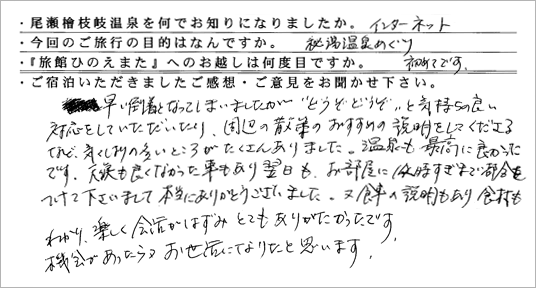 ・尾瀬檜枝岐温泉を何でお知りになりましたか。 インターネット
・今回のご旅行の目的はなんですか。 秘湯温泉めぐり
・『旅館ひのえまた』へのお越しは何度目ですか。 初めてです。
・ご宿泊いただきましたご感想・ご意見をお聞かせ下さい。
早い到着となってしまいましたが"どうぞどうぞ"と気持ちの良い
対応をしていただいたり、周辺の散策のおすすめの説明をしてくださる
など、気くばりの多いところがたくさんありました。温泉も最高に良かった
です。天候も良くなかった事もあり翌日も、お部屋に 時すぎまで都合を
つけて下さいまして本当にありがとうございました。又食事の説明もあり食材も
わかり、楽しく会話がはずみとてもありがたかったです。
機会があったら又お世話になりたいと思います。